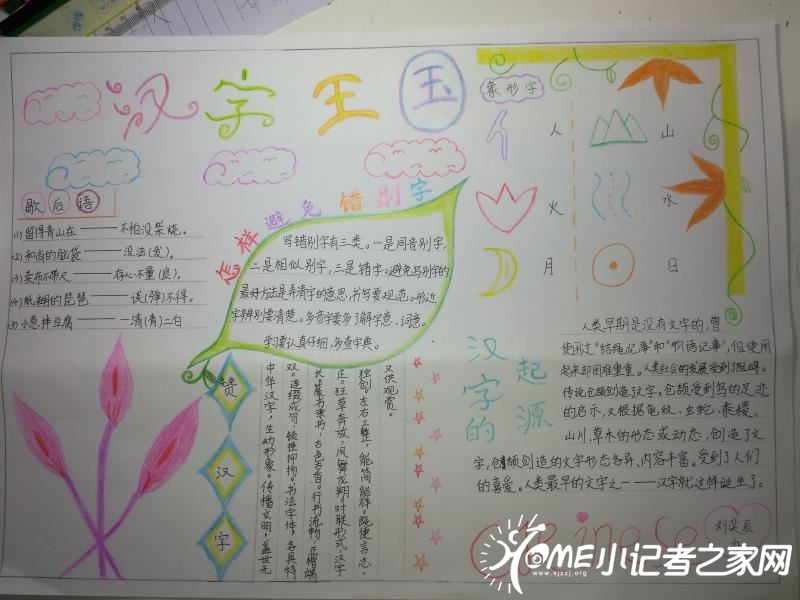 汉字王国
歇后语
(1)留得青山在——不怕没柴烧。
(2)和尚的脑袋——没法(发)。
(3)卖布不带尺——存心不量(良)。
(4)纸糊的琵琶——谈(弹)不得。
(5)小葱拌豆腐——一清(青)二白
怎样避免错别字
写错别字有三类。一是同音别字,
二是相似别字,三是错字。避免写别字的
最好方法是弄清字的意思,书写要规范。形近
字辨别要清楚。多音字要多了解字意、词意。
学习要认真仔细,多查字典。
象形字
人
山
火
水
月
日
赞汉字
中华汉字,生动形象。传播文明,盖世无
双。连缀成句,顿挫抑扬。书法字体,各具特
长。篆书隶书,古色古香。行书流畅,正楷端
庄。狂草奔放,凤舞龙翔。对联形式,汉字
独创。左右工整,能简能详。既便言志,
又供观赏。
汉字的起源
人类早期是没有文字的,曾
使用过"结绳记事"和"物语记事",但使用
起来却困难重重。人类社会的发展受到阻碍。
传说仓颉创造了文字。仓颉受到鸟的足迹
的启示,又根据龟纹、虫蛇、黍稷、
山川、草木的形态或动态,创造了文
字,仓颉创造的文字形态各异、内容丰富。受到了人们
的喜爱。人类最早的文字之一——汉字就这样诞生了。
刘奕辰
HOME小记者之家网
www.xjzzj.org